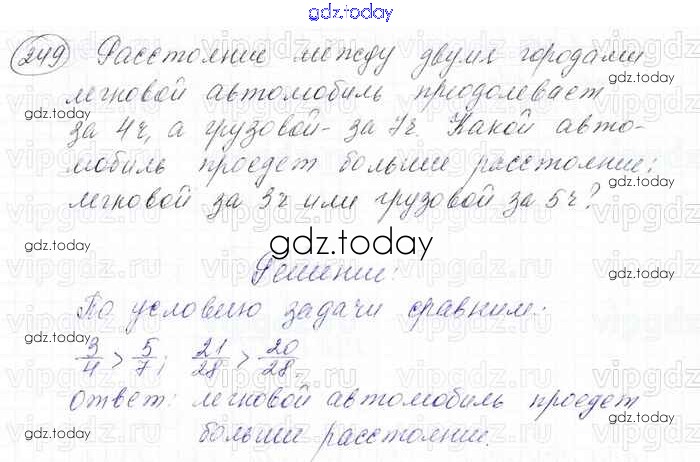 gdz.today
249 Расстояние между двумя городами
легковой автомобиль преодолевает
за 4ч, а грузовой - за 7ч. Какой авто-
мобиль проедет больше расстояние:
легковой за 3ч или грузовой за 5ч?
gdz.today
Решение:
По условию задачи сравним:
3/4 > 5/7; 21/28 > 20/28.
Ответ: легковой автомобиль проедет
больше расстояние.
gdz.today